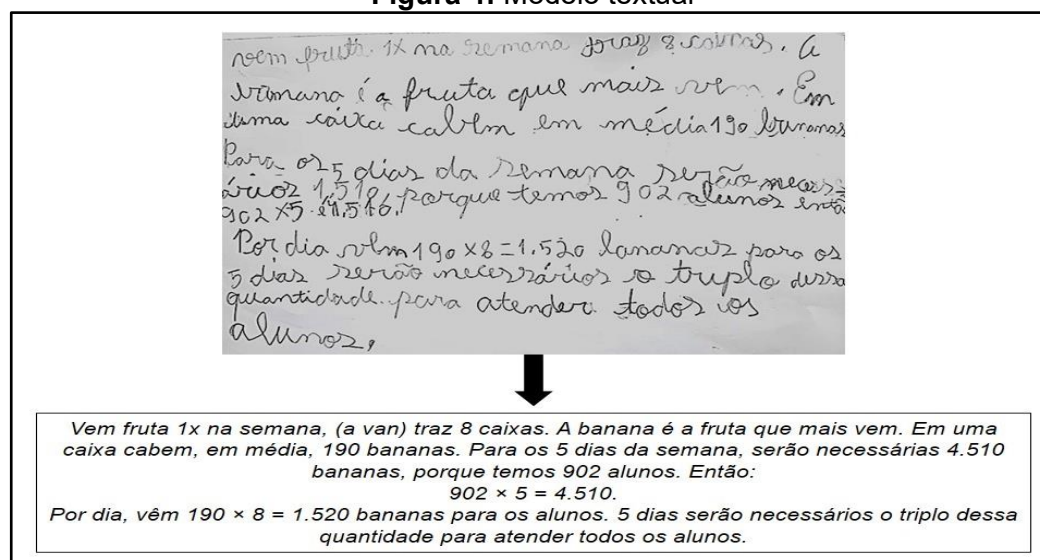 Figura 4. Modelo textual
vem fruta 1x na semana traz 8 caixas. A
banana é a fruta que mais vem. Em
uma caixa cabem em média 190 bananas
Para os 5 dias da semana serão necess
ários porque temos 902 alunos então
902 x 5
Por dia vem 190 x 8 = 1.520 bananas para os
5 dias serão necessários o triplo dessa
quantidade para atender todos os
alunos.
Vem fruta 1x na semana, (a van) traz 8 caixas. A banana é a fruta que mais vem. Em uma
caixa cabem, em média, 190 bananas. Para os 5 dias da semana, serão necessárias 4.510
bananas, porque temos 902 alunos. Então:
902 × 5 = 4.510.
Por dia, vêm 190 × 8 = 1.520 bananas para os alunos. 5 dias serão necessários o triplo dessa
quantidade para atender todos os alunos.